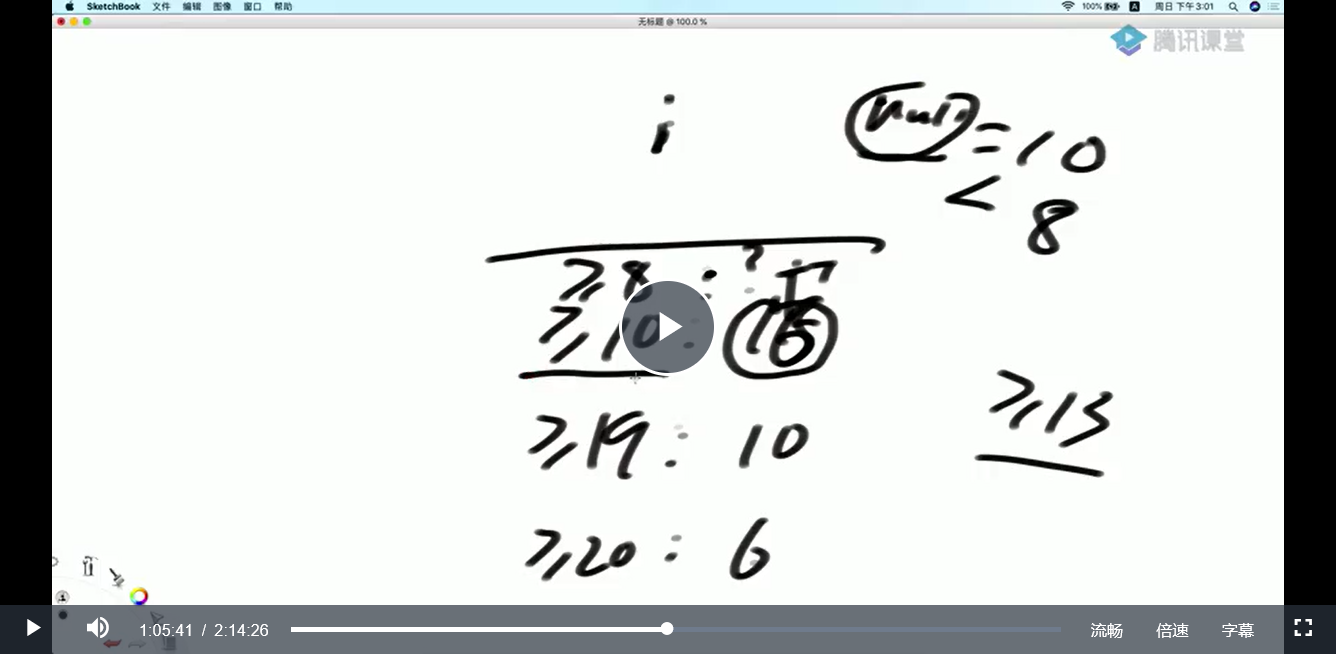 SketchBook 文件 编辑 图像 窗口 帮助 100% A 周日 下午3:01
无标题 @ 100.0 %
腾讯课堂
i
null = 10
< 8
≥8 : ?
≥10 :
≥13
≥19 : 10
≥20 : 6
1:05:41 / 2:14:26 流畅 倍速 字幕